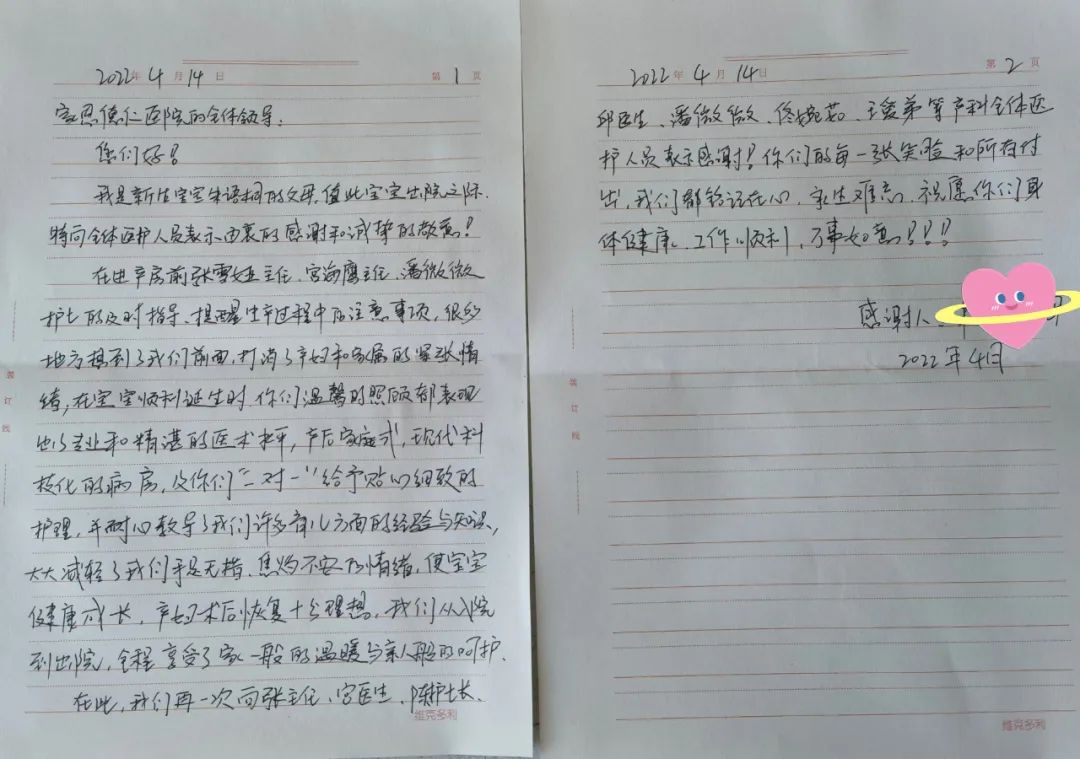 2022年 4月 14日 第 1 页
家恩德仁医院的全体领导:
您们好!
我是新生宝宝朱语桐的父母,值此宝宝出院之际,
特向全体医护人员表示由衷的感谢和诚挚的敬意!
在进产房前张雪娅主任、宫海鹰主任、潘微微
护士的及时指导、提醒生产过程中的注意事项,很多
地方想到了我们前面,打消了产妇和家属的紧张情
绪,在宝宝顺利诞生时,你们温馨的照顾都表现
出了专业和精湛的医术水平,产后家庭式,现代科
技化的病房,及你们“二对一”给予贴心细致的
护理,并耐心教导了我们许多育儿方面的经验与知识,
大大减轻了我们手足无措、焦灼不安的情绪,使宝宝
健康成长,产妇术后恢复十分理想。我们从入院
到出院,全程享受了家一般的温暖与亲人般的呵护.
在此,我们再一次向张主任、宫医生、陈护士长、
维克多利
装订线
2022年 4月 14日 第 2 页
邱医生、潘微微、佟婉茹、王爱弟等产科全体医
护人员表示感谢!你们的每一张笑脸和所有付
出,我们都铭记在心,永生难忘。祝愿你们身
体健康、工作顺利,万事如意!!!!
感谢人:
2022年4月
装订线
维克多利